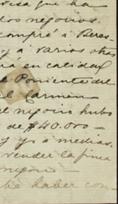 que ha
los negocios.
compré a Teres-
y a varios otros
en calidad
Poniente del
Carmen
negocio hubo
de $40.000
y yo a medias.
vender la finca
negocio
haber con-